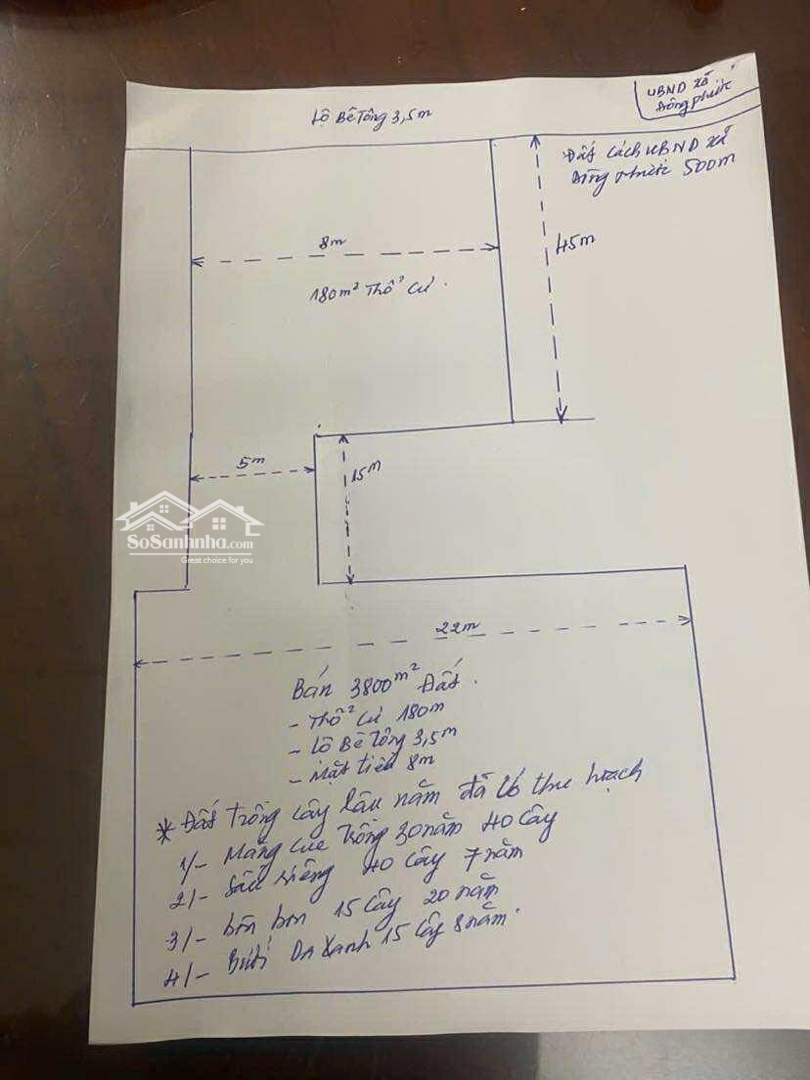 UBND xã
Đông phước
Lộ Bê Tông 3,5m
Đất cách UBND xã
Đông phước 500m
8m
45m
180m² Thổ Cư.
5m
15m
SoSanhnha.com
Great choice for you
22m
Bán 3800m² Đất.
- Thổ Cư 180m
- Lộ Bê Tông 3,5m
- Mặt tiền 8m
* Đất trồng cây lâu năm đã có thu hoạch
1/- Măng cục trồng 30 năm 40 cây
2/- Sầu riêng 40 cây 7 năm
3/- bòn bon 15 cây 20 năm
4/- Bưởi Da Xanh 15 cây 8 năm.